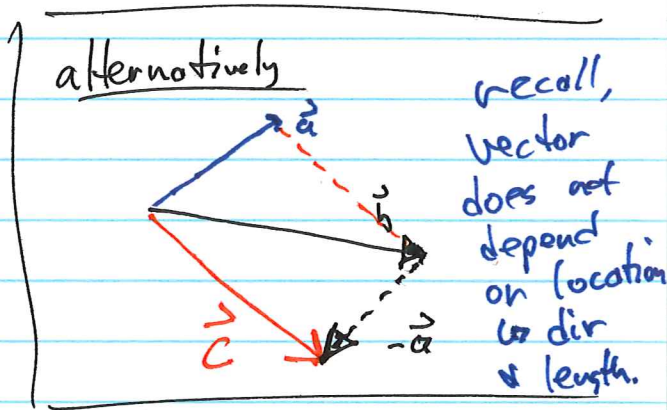 alternatively
a⃗
b⃗
c⃗
-a⃗
recall,
vector
does not
depend
on location
dir
& length.